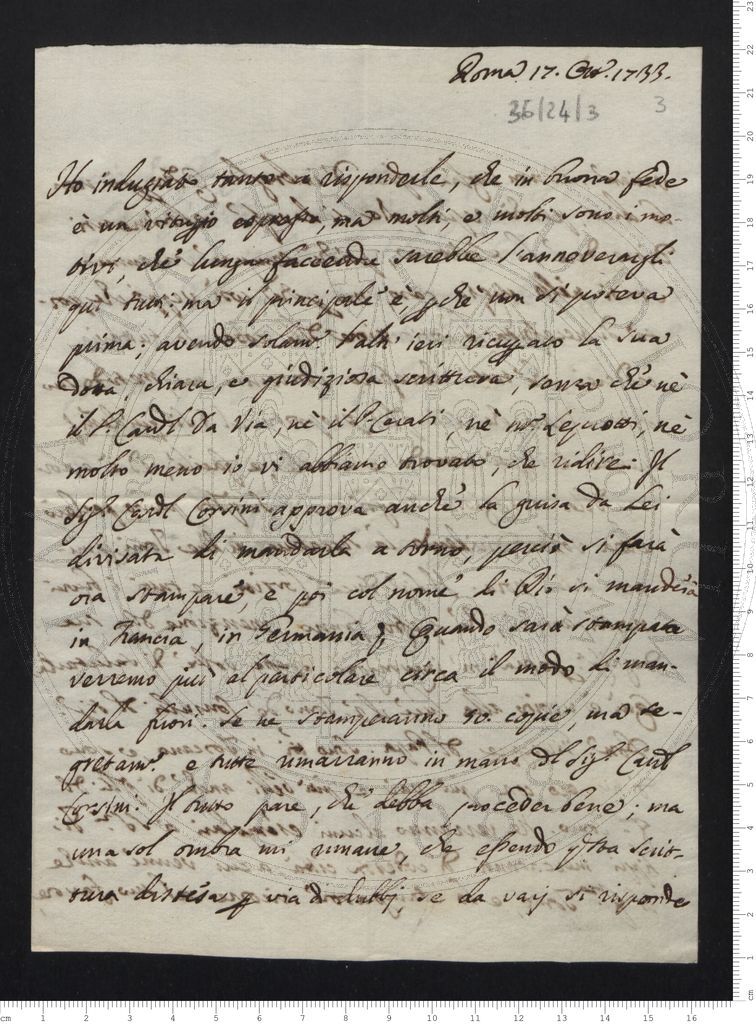 Roma 17. Ott. 1733.
36/24/3
3
Ho indugiato tanto a risponderle, che in buona fede
è un vitugio espresso, ma molti, e molti sono i mo-
tivi, che lunga faccenda sarebbe l'annoverargli
qui tutti, ma il principale è, pchè non si poteva
prima; avendo solamte l'altr' ieri ricuperato la sua
dotta, chiara, e giudiziosa scrittura, senza che nè
il S. Cardl Da Via, nè il P. Cerati, nè mr Lequotti, nè
molto meno io vi abbiamo trovato, che ridire. Il
Sigr Cardl Corsini approva anche la guisa da Lei
divisata di mandarla a torno, perciò si farà
ora stampare, e poi col nome di Dio si manderà
in Francia, in Germania Quando sarà stampata
verremo più al particolare circa il modo di man-
darla fuori. Se ne stamperanno 50. copie, ma se-
gretamte e tutte rimarranno in mano del Sigr Cardl
Corsini. Il tutto pare, che debba proceder bene; ma
una sol ombra mi rimane, che essendo qsta scrit-
tura distesa p via di dubbj, se da varj si risponde